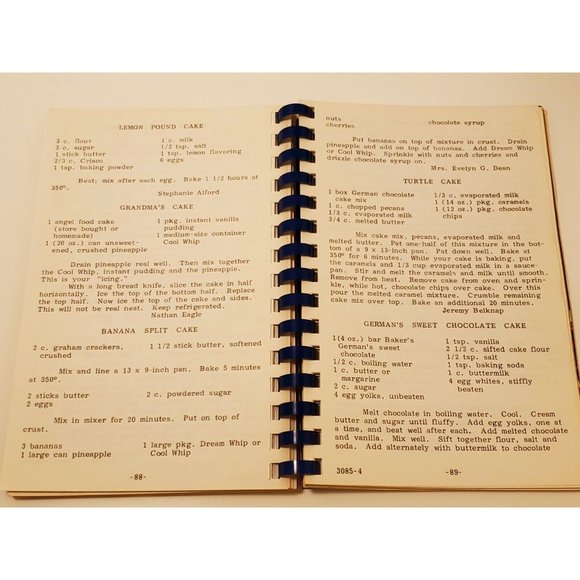 LEMON POUND CAKE
3 c. flour
3 c. sugar
1 stick butter
2/3 c. Crisco
1 tsp. baking powder
1 c. milk
1/2 tsp. salt
1 tsp. lemon flavoring
6 eggs
Beat; mix after each egg. Bake 1 1/2 hours at
350°.
Stephanie Alford
GRANDMA'S CAKE
1 angel food cake
(store bought or
homemade)
1 (20 oz.) can unsweet-
ened, crushed pineapple
1 pkg. instant vanilla
pudding
1 medium-size container
Cool Whip
Drain pineapple real well. Then mix together
the Cool Whip, instant pudding and the pineapple.
This is your "icing."
With a long bread knife, slice the cake in half
horizontally. Ice the top of the bottom half. Replace
the top half. Now ice the top of the cake and sides.
This will not be real neat. Keep refrigerated.
Nathan Eagle
BANANA SPLIT CAKE
2 c. graham crackers,
crushed
1 1/2 stick butter, softened
Mix and line a 13 x 9-inch pan. Bake 5 minutes
at 350°.
2 sticks butter
2 eggs
2 c. powdered sugar
Mix in mixer for 20 minutes. Put on top of
crust.
3 bananas
1 large can pineapple
1 large pkg. Dream Whip or
Cool Whip
-88-
nuts
cherries
chocolate syrup
Put bananas on top of mixture in crust. Drain
pineapple and add on top of bananas. Add Dream Whip
or Cool Whip. Sprinkle with nuts and cherries and
drizzle chocolate syrup on.
Mrs. Evelyn G. Dean
TURTLE CAKE
1 box German chocolate
cake mix
1 c. chopped pecans
1/3 c. evaporated milk
3/4 c. melted butter
1/3 c. evaporated milk
1 (14 oz.) pkg. caramels
1 (12 oz.) pkg. chocolate
chips
Mix cake mix, pecans, evaporated milk and
melted butter. Pat one-half of this mixture in the bot-
tom of a 9 x 13-inch pan. Pat down well. Bake at
350° for 6 minutes. While your cake is baking, put
the caramels and 1/3 cup evaporated milk in a sauce-
pan. Stir and melt the caramels and milk until smooth.
Remove from heat. Remove cake from oven and sprin-
kle, while hot, chocolate chips over cake. Over this
pour the melted caramel mixture. Crumble remaining
cake mix over top. Bake an additional 20 minutes.
Jeremy Belknap
GERMAN'S SWEET CHOCOLATE CAKE
1 (4 oz.) bar Baker's
German's sweet
chocolate
1/2 c. boiling water
1 c. butter or
margarine
2 c. sugar
4 egg yolks, unbeaten
1 tsp. vanilla
2 1/2 c. sifted cake flour
1/2 tsp. salt
1 tsp. baking soda
1 c. buttermilk
4 egg whites, stiffly
beaten
Melt chocolate in boiling water. Cool. Cream
butter and sugar until fluffy. Add egg yolks, one at
a time, and beat well after each. Add melted chocolate
and vanilla. Mix well. Sift together flour, salt and
soda. Add alternately with buttermilk to chocolate
3085-4
-89-